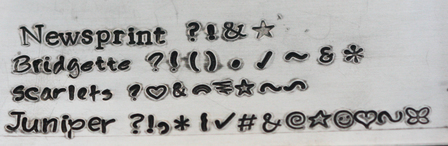 Newsprint ?!&☆
Bridgette ?!() • ✓ ~ & *
Scarlets ?♡& ☆~
Juniper ?!,* ! ✓ # & @☆☺♡~